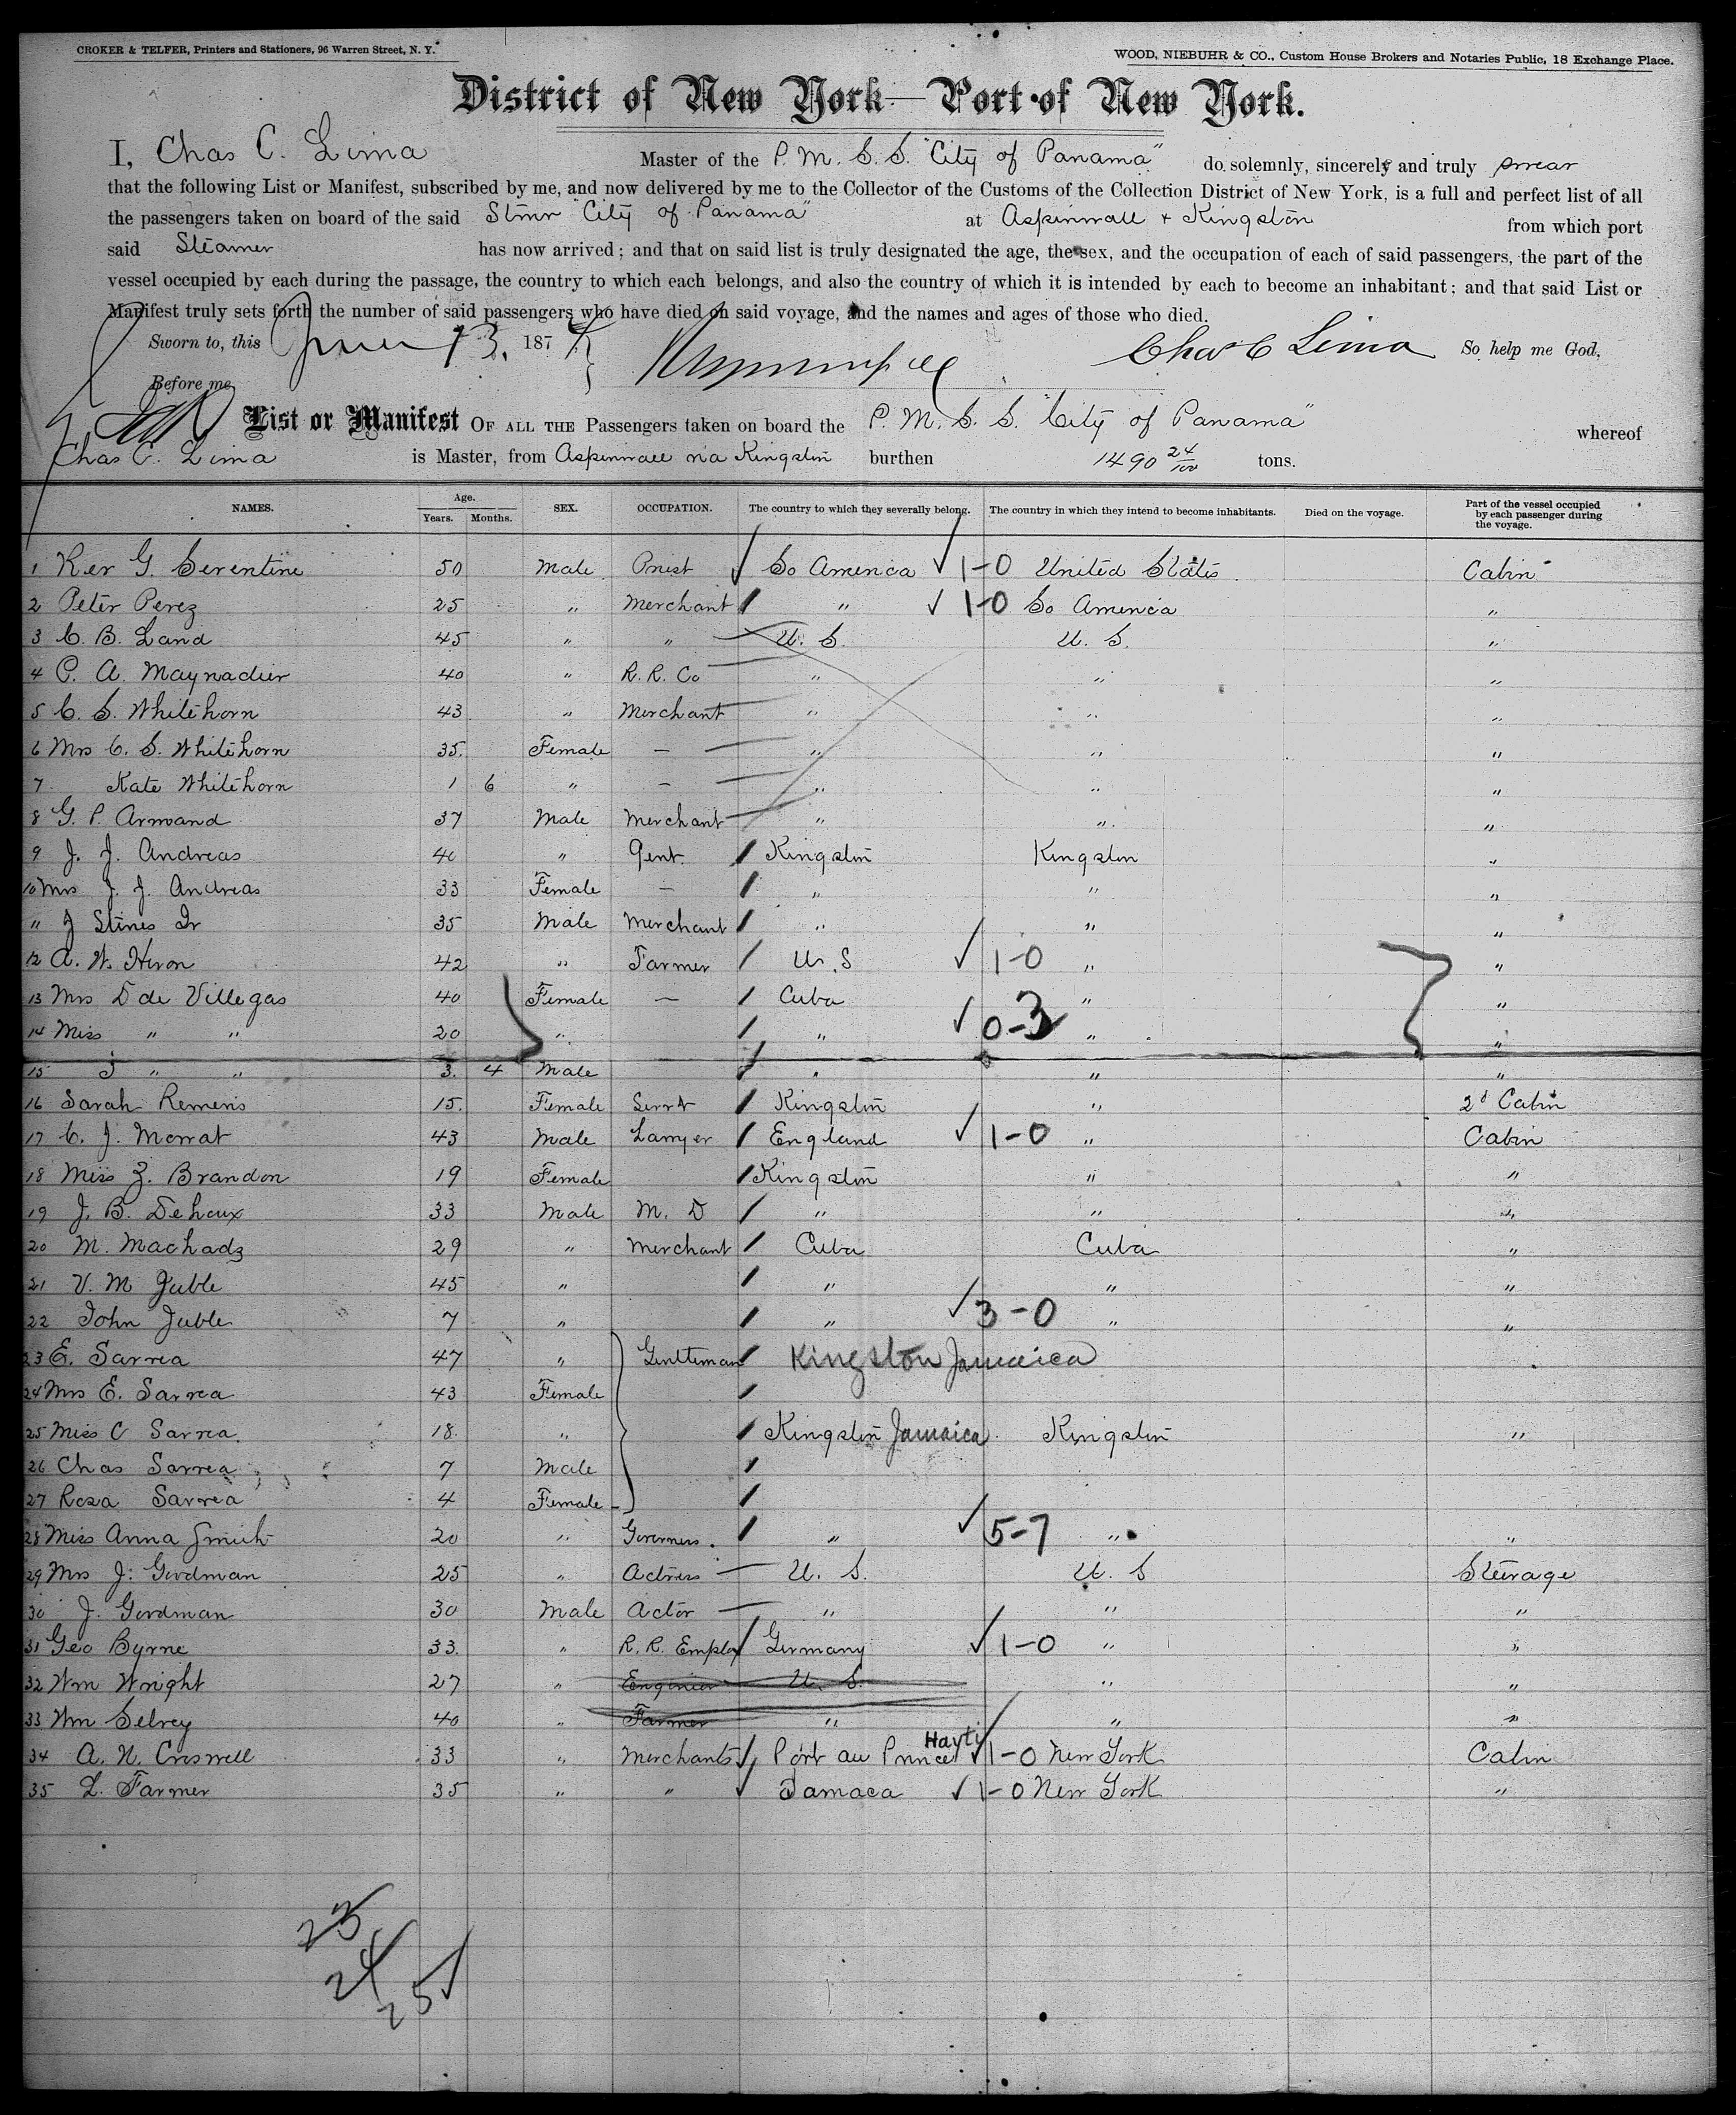 CROKER & TELFER, Printers and Stationers, 96 Warren Street, N. Y.
WOOD, NIEBUHR & CO., Custom House Brokers and Notaries Public, 18 Exchange Place.
District of New York—Port of New York.
I, Chas C. Lima Master of the P. M. S. S. "City of Panama" do solemnly, sincerely and truly swear
that the following List or Manifest, subscribed by me, and now delivered by me to the Collector of the Customs of the Collection District of New York, is a full and perfect list of all
the passengers taken on board of the said Stmr "City of Panama" at Aspinwall + Kingston from which port
said Steamer has now arrived; and that on said list is truly designated the age, the sex, and the occupation of each of said passengers, the part of the
vessel occupied by each during the passage, the country to which each belongs, and also the country of which it is intended by each to become an inhabitant; and that said List or
Manifest truly sets forth the number of said passengers who have died on said voyage, and the names and ages of those who died.
Sworn to, this June 13, 187 Chas C Lima So help me God,
Before me
List or Manifest OF ALL THE Passengers taken on board the P. M. S. S. "City of Panama" whereof
Chas C. Lima is Master, from Aspinwall via Kingston burthen 1490 24/100 tons.
NAMES. Age. Years. Months. SEX. OCCUPATION. The country to which they severally belong. The country in which they intend to become inhabitants. Died on the voyage. Part of the vessel occupied by each passenger during the voyage.
1 Rev G. Serentine 50 Male Priest So America 1-0 United States Cabin
2 Peter Perez 25 " Merchant " 1-0 So America "
3 C. B. Land 45 " " U. S. U. S. "
4 P. A. Maynadier 40 " R. R. Co " " "
5 C. S. Whitehorn 43 " Merchant " " "
6 Mrs C. S. Whitehorn 35. Female — " " "
7 Kate Whitehorn 1 6 " — " " "
8 G. P. Armand 37 Male Merchant " " "
9 J. J. Andreas 40 " Gent. Kingston Kingston "
10 Mrs J. J. Andreas 33 Female — " " "
" J Stines Jr 35 Male Merchant " " "
12 A. W. Heron 42 " Farmer U. S 1-0 " "
13 Mrs D de Villegas 40 Female — Cuba " "
14 Miss " " 20 " " 0-3 " "
15 J " " 3. 4 Male " " "
16 Sarah Remeris 15. Female Servt Kingston " 2d Cabin
17 C. J. Morrat 43 Male Lawyer England 1-0 " Cabin
18 Miss Z. Brandon 19 Female Kingston " "
19 J. B. Dehoux 33 Male M. D " " "
20 M. Machadz 29 " Merchant Cuba Cuba "
21 V. M Juble 45 " " " "
22 John Juble 7 " " 3-0 " "
23 E. Sarrea 47 " Gentleman Kingston Jamaica
24 Mrs E. Sarrea 43 Female
25 Miss C Sarrea. 18. " Kingston Jamaica Kingston "
26 Chas Sarrea 7 Male
27 Rosa Sarrea 4 Female
28 Miss Anna Smith 20 " Governess. " 5-7 " "
29 Mrs J. Goodman 25 " Actress U. S. U. S Steerage
30 J. Goodman 30 Male Actor " " "
31 Geo Byrne 33. " R. R. Employ Germany 1-0 " "
32 Wm Wright 27 " Engineer U. S. " "
33 Wm Selvey 40 " Farmer " " "
34 A. N. Criswell 33 " Merchants Port au Prince Hayti 1-0 New York Cabin
35 L. Farmer 35 " " Jamaca 1-0 New York "
23
24
25